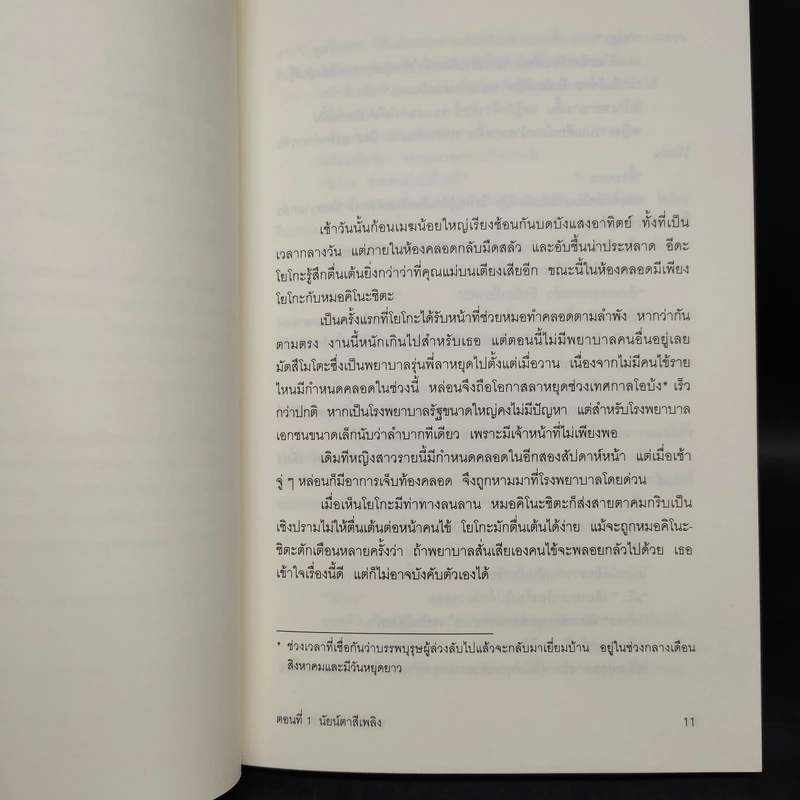 เช้าวันนั้นก้อนเมฆน้อยใหญ่เรียงซ้อนกันบดบังแสงอาทิตย์ ทั้งที่เป็น
เวลากลางวัน แต่ภายในห้องคลอดกลับมืดสลัว และอับชื้นน่าประหลาด อีดะ
โยโกะรู้สึกตื่นเต้นยิ่งกว่าว่าที่คุณแม่บนเตียงเสียอีก ขณะนี้ในห้องคลอดมีเพียง
โยโกะกับหมอคิโนะชิตะ
เป็นครั้งแรกที่โยโกะได้รับหน้าที่ช่วยหมอทำคลอดตามลำพัง หากว่ากัน
ตามตรง งานนี้หนักเกินไปสำหรับเธอ แต่ตอนนี้ไม่มีพยาบาลคนอื่นอยู่เลย
มัตสึโมโตะซึ่งเป็นพยาบาลรุ่นพี่ลาหยุดไปตั้งแต่เมื่อวาน เนื่องจากไม่มีคนไข้ราย
ไหนมีกำหนดคลอดในช่วงนี้ หล่อนจึงถือโอกาสลาหยุดช่วงเทศกาลโอบ้ง* เร็ว
กว่าปกติ หากเป็นโรงพยาบาลรัฐขนาดใหญ่คงไม่มีปัญหา แต่สำหรับโรงพยาบาล
เอกชนขนาดเล็กนับว่าลำบากทีเดียว เพราะมีเจ้าหน้าที่ไม่เพียงพอ
เดิมทีหญิงสาวรายนี้มีกำหนดคลอดในอีกสองสัปดาห์หน้า แต่เมื่อเช้า
จู่ ๆ หล่อนก็มีอาการเจ็บท้องคลอด จึงถูกหามมาที่โรงพยาบาลโดยด่วน
เมื่อเห็นโยโกะมีท่าทางลนลาน หมอคิโนะชิตะก็ส่งสายตาคมกริบเป็น
เชิงปรามไม่ให้ตื่นเต้นต่อหน้าคนไข้ โยโกะมักตื่นเต้นได้ง่าย แม้จะถูกหมอคิโนะ-
ชิตะตักเตือนหลายครั้งว่า ถ้าพยาบาลสั่นเสียเองคนไข้จะพลอยกลัวไปด้วย เธอ
เข้าใจเรื่องนี้ดี แต่ก็ไม่อาจบังคับตัวเองได้
* ช่วงเวลาที่เชื่อกันว่าบรรพบุรุษผู้ล่วงลับไปแล้วจะกลับมาเยี่ยมบ้าน อยู่ในช่วงกลางเดือน
สิงหาคมและมีวันหยุดยาว
ตอนที่ 1 นัยน์ตาสีเพลิง 11